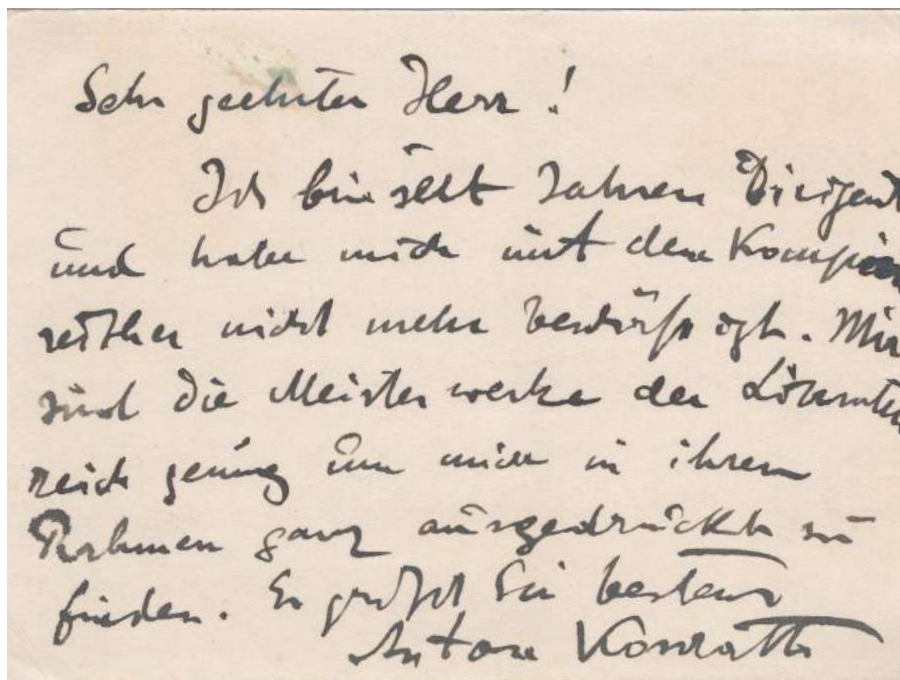 Sehr geehrter Herr!
Ich bin seit Jahren Dirigent
und habe mich mit dem
seither nicht mehr beschäftigt. Mir
sind die Meisterwerke der
reich genug um mich in ihrem
Rahmen ganz ausgedrückt zu
finden. Es grüßt Sie bestens
Anton Konrath